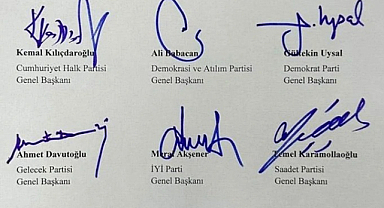 Kemal Kılıçdaroğlu
Cumhuriyet Halk Partisi
Genel Başkanı
Ali Babacan
Demokrasi ve Atılım Partisi
Genel Başkanı
Gültekin Uysal
Demokrat Parti
Genel Başkanı
Ahmet Davutoğlu
Gelecek Partisi
Genel Başkanı
Meral Akşener
İYİ Parti
Genel Başkanı
Temel Karamollaoğlu
Saadet Partisi
Genel Başkanı